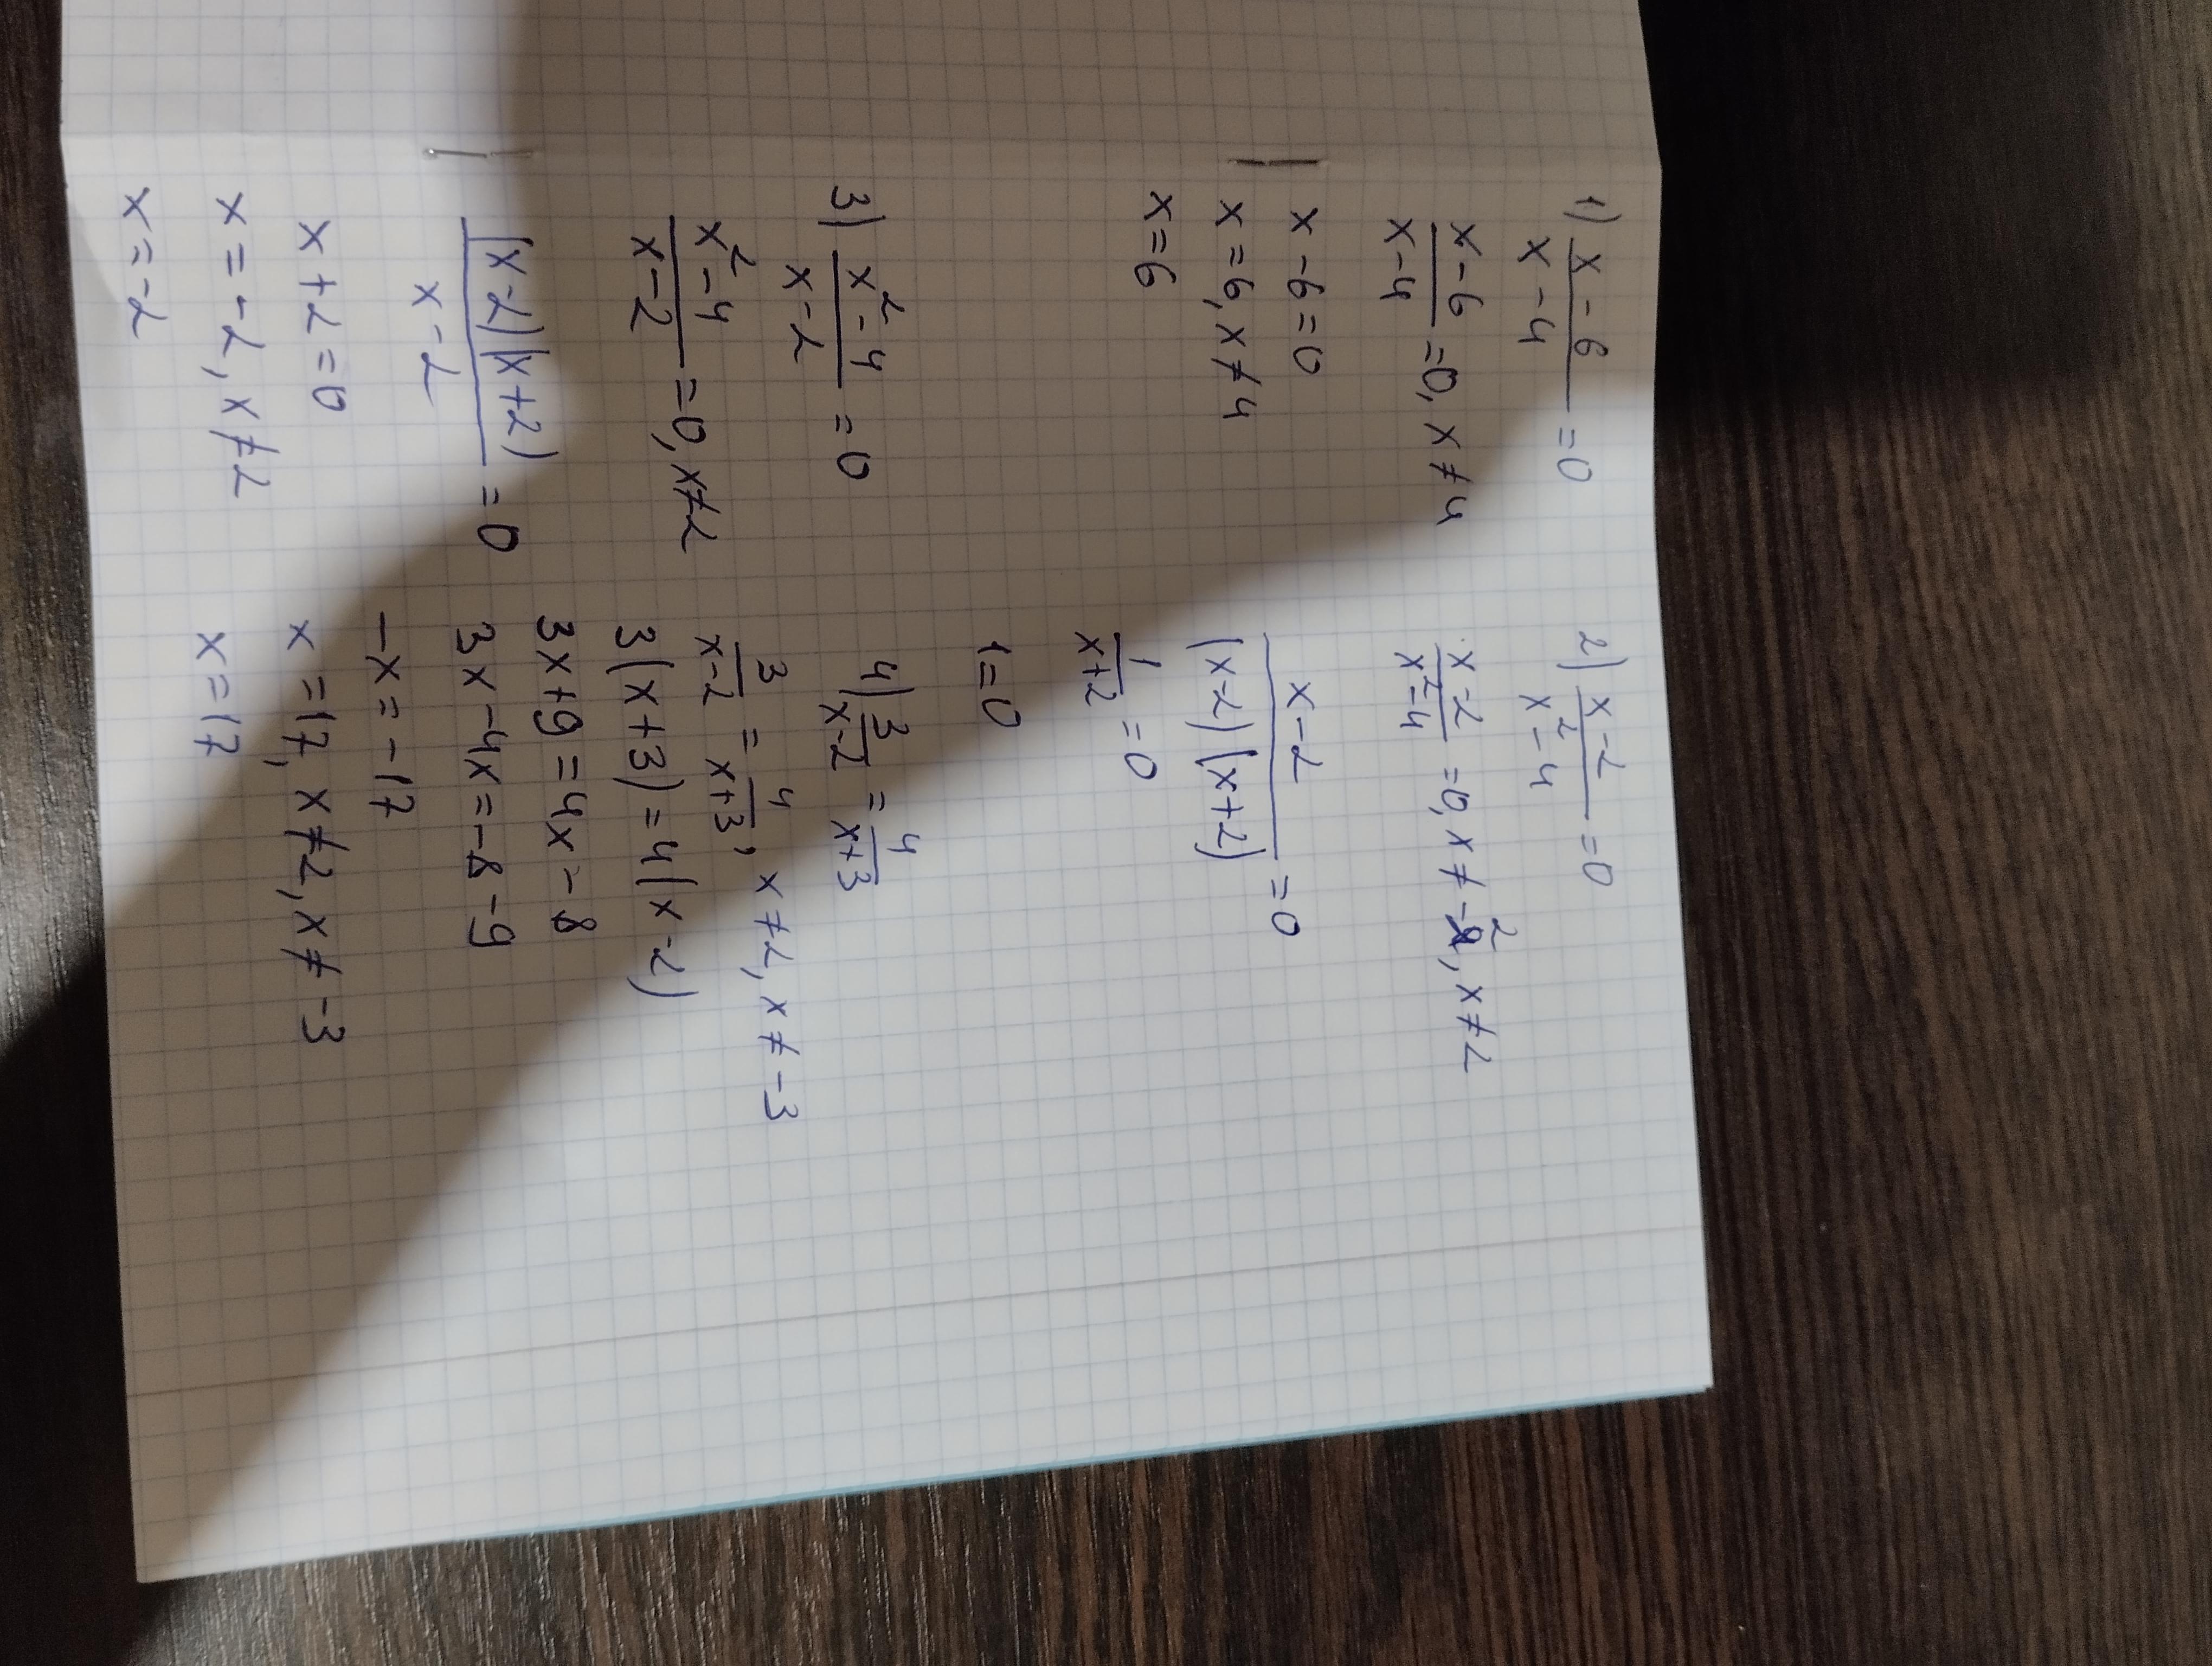 1) (x-6)/(x-4) = 0
(x-6)/(x-4) = 0, x ≠ 4
x - 6 = 0
x = 6, x ≠ 4
x = 6
2) (x-2)/(x²-4) = 0
(x-2)/(x²-4) = 0, x ≠ -2, x ≠ 2
(x-2)/((x-2)(x+2)) = 0
1/(x+2) = 0
1 = 0
3) (x²-4)/(x-2) = 0
(x²-4)/(x-2) = 0, x ≠ 2
((x-2)(x+2))/(x-2) = 0
x + 2 = 0
x = -2, x ≠ 2
x = -2
4) 3/(x-2) = 4/(x+3)
3/(x-2) = 4/(x+3), x ≠ 2, x ≠ -3
3(x+3) = 4(x-2)
3x + 9 = 4x - 8
3x - 4x = -8 - 9
-x = -17
x = 17, x ≠ 2, x ≠ -3
x = 17